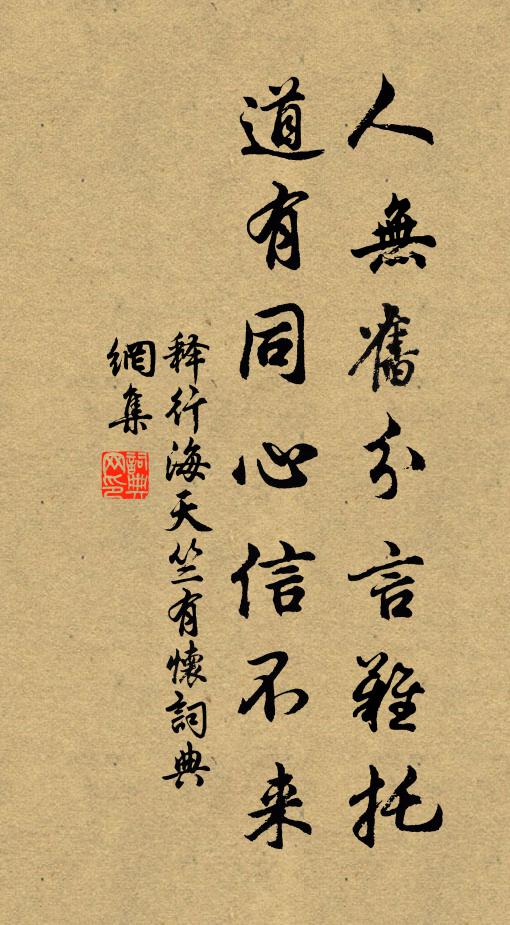 人無舊分言難托
道有同心信不来
释行海天竺有懷詞典
網集
詞典
网印